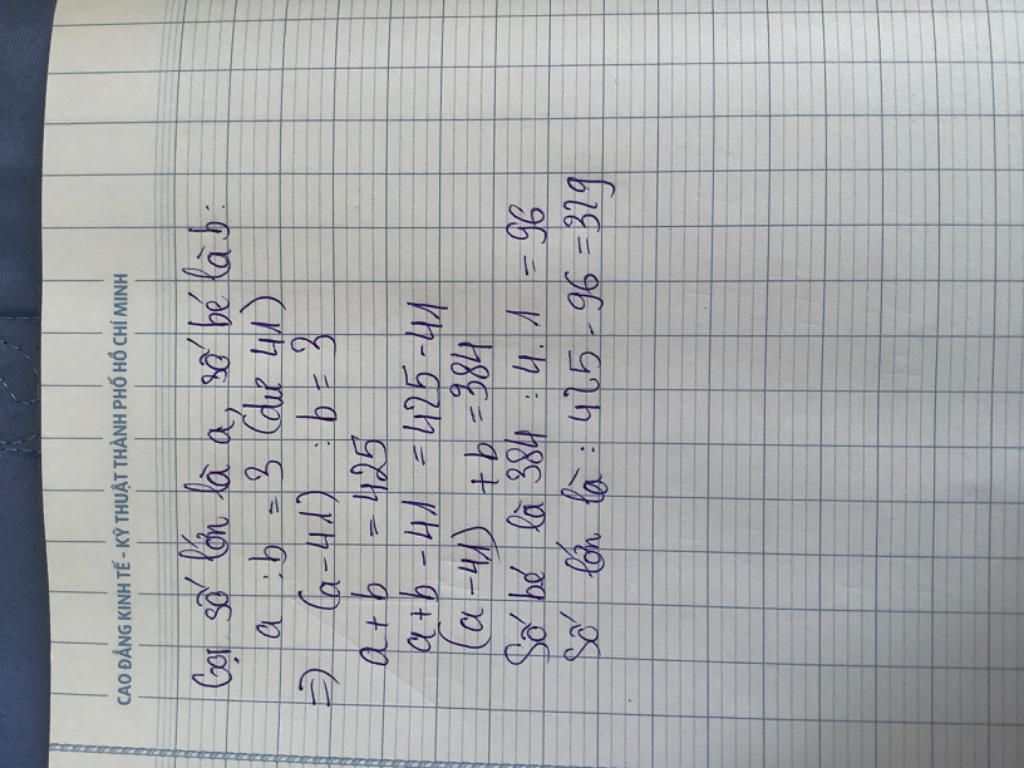 CAO ĐẲNG KINH TẾ - KỸ THUẬT THÀNH PHỐ HỒ CHÍ MINH
Gọi số lớn là a, số bé là b:
a : b = 3 (dư 41)
=) (a - 41) : b = 3
a + b = 425
a + b - 41 = 425 - 41
(a - 41) + b = 384
Số bé là 384 : 4 . 1 = 96
Số lớn là : 425 - 96 = 329